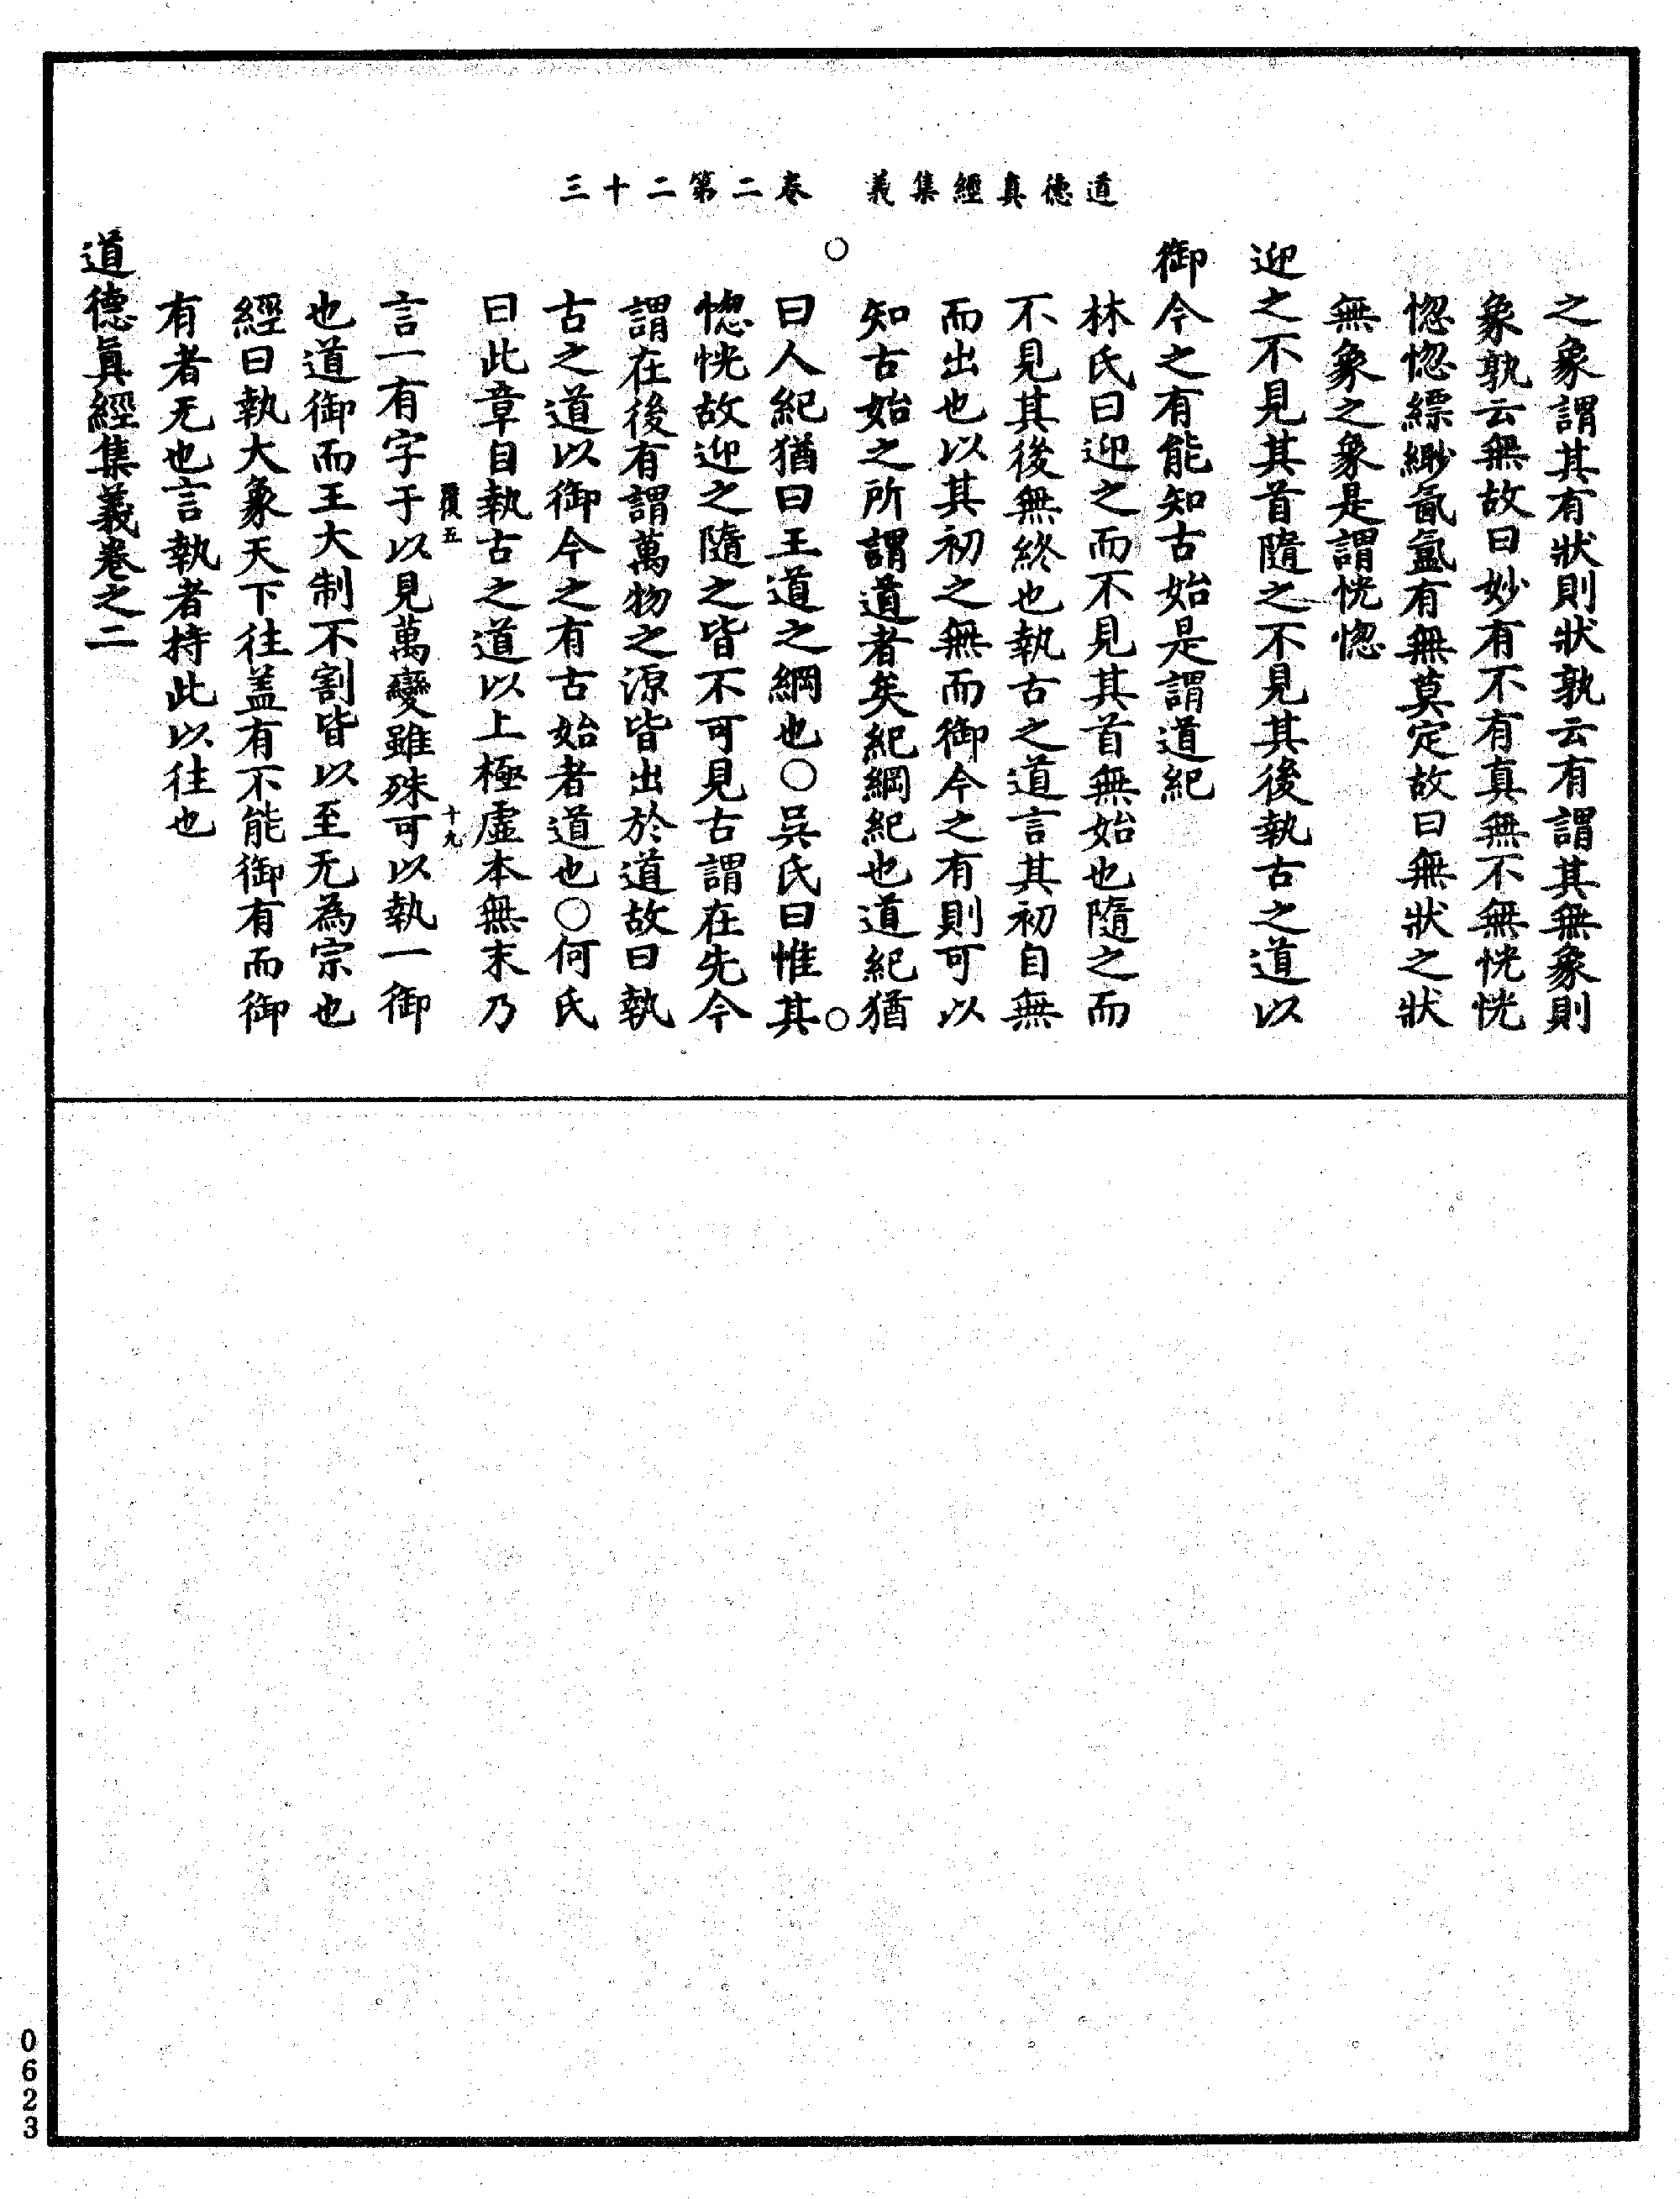 道德真經集義　卷二第二十三
之象謂其有狀則狀孰云有謂其無象則
象孰云無故曰妙有不有真無不無恍恍
惚惚縹緲氤氳有無莫定故曰無狀之狀
無象之象是謂恍惚
迎之不見其首隨之不見其後執古之道以
御今之有能知古始是謂道紀
林氏曰迎之而不見其首無始也隨之而
不見其後無終也執古之道言其初自無
而出也以其初之無而御今之有則可以
知古始之所謂道者矣紀綱紀也道紀猶
曰人紀猶曰王道之綱也○吳氏曰惟其
惚恍故迎之隨之皆不可見古謂在先今
謂在後有謂萬物之源皆出於道故曰執
古之道以御今之有古始者道也○何氏
曰此章自執古之道以上極虛本無末乃
言一有字于以見萬變雖殊可以執一御
也道御而王大制不割皆以至无為宗也
經曰執大象天下往盖有不能御有而御
有者无也言執者持此以往也
道德真經集義卷之二
五
十九
0623